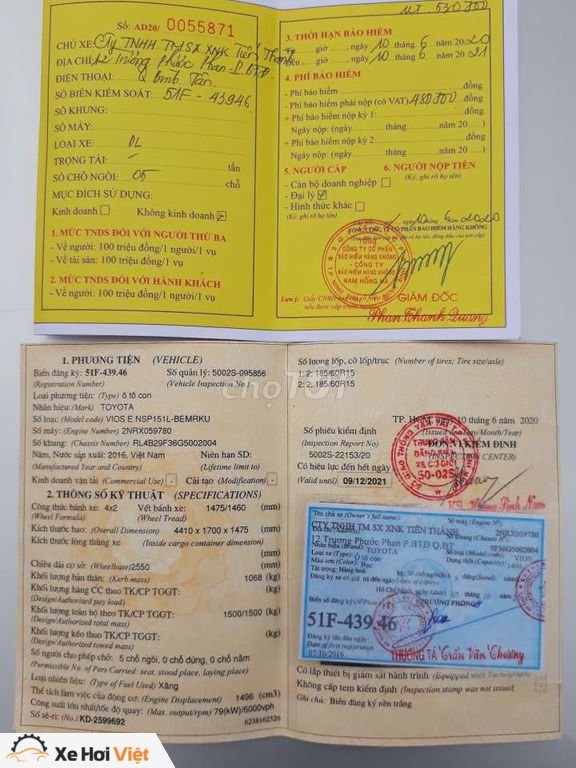 Số: AD20/ 0055871
CHỦ XE: Cty TNHH TM SX XNK Tiến Thành
ĐỊA CHỈ: 12 Trương Phước Phan - P. BTĐ
ĐIỆN THOẠI: Q Bình Tân
SỐ BIỂN KIỂM SOÁT: 51F - 43946
SỐ KHUNG:
SỐ MÁY:
LOẠI XE: DL
TRỌNG TẢI: tấn
SỐ CHỖ NGỒI: 05 chỗ
MỤC ĐÍCH SỬ DỤNG:
Kinh doanh Không kinh doanh
1. MỨC TNDS ĐỐI VỚI NGƯỜI THỨ BA
- Về người: 100 triệu đồng/1 người/1 vụ
- Về tài sản: 100 triệu đồng/1 vụ
2. MỨC TNDS ĐỐI VỚI HÀNH KHÁCH
- Về người: 100 triệu đồng/1 người/1 vụ
3. THỜI HẠN BẢO HIỂM
giờ , ngày 10 tháng 6 năm 2020
giờ , ngày 10 tháng 6 năm 2021
4. PHÍ BẢO HIỂM
- Phí bảo hiểm đồng
- Phí bảo hiểm phải nộp (có VAT) 480.700 đồng
+ Phí bảo hiểm nộp kỳ 1: đồng
Ngày nộp: (ngày tháng năm 20 )
+ Phí bảo hiểm nộp kỳ 2: đồng
Ngày nộp: (ngày tháng năm 20 )
5. NGƯỜI CẤP 6. NGƯỜI NỘP TIỀN
- Cán bộ doanh nghiệp (Ký, ghi rõ họ tên)
- Đại lý
- Hình thức khác
(Ký, ghi rõ họ tên)
ngày 10 tháng 6 năm 2020
TỔNG
CÔNG TY CỔ PHẦN
BẢO HIỂM HÀNG KHÔNG
- CÔNG TY
BẢO HIỂM HÀNG KHÔNG
NAM HỒNG HÀ
GIÁM ĐỐC
Phan Thanh Quang
1. PHƯƠNG TIỆN (VEHICLE)
Biển đăng ký: 51F-439.46 Số quản lý: 5002S-095856
(Registration Number) (Vehicle Inspection No.)
Loại phương tiện: (Type) Ô tô con
Nhãn hiệu: (Mark) TOYOTA
Số loại: (Model code) VIOS E NSP151L-BEMRKU
Số máy: (Engine Number) 2NRX059780
Số khung: (Chassis Number) RL4B29F36G5002004
Năm, Nước sản xuất: 2016, Việt Nam Niên hạn SD:
(Manufactured Year and Country) (Lifetime limit to)
Kinh doanh vận tải (Commercial Use) - Cải tạo (Modification) -
2. THÔNG SỐ KỸ THUẬT (SPECIFICATIONS)
Công thức bánh xe: 4x2 Vết bánh xe: 1475/1460 (mm)
(Wheel Formula) (Wheel Tread)
Kích thước bao: (Overall Dimension) 4410 x 1700 x 1475 (mm)
Kích thước lòng thùng xe: (Inside cargo container dimension)
(mm)
Chiều dài cơ sở: (Wheelbase) 2550 (mm)
Khối lượng bản thân: (Kerb mass) 1068 (kg)
Khối lượng hàng CC theo TK/CP TGGT: (kg)
(Design/Authorized pay load)
Khối lượng toàn bộ theo TK/CP TGGT: 1500/1500 (kg)
(Design/Authorized total mass)
Khối lượng kéo theo TK/CP TGGT: (kg)
(Design/Authorized towed mass)
Số người cho phép chở: 5 chỗ ngồi, 0 chỗ đứng, 0 chỗ nằm
(Permissible No. of Pers Carried: seat, stood place, laying place)
Loại nhiên liệu: (Type of Fuel Used) Xăng
Thể tích làm việc của động cơ: (Engine Displacement) 1496 (cm3)
Công suất lớn nhất/tốc độ quay: (Max. output/rpm) 79(kW)/6000vph
Số sê-ri: (No.) KD-2599692 6238162526
Số lượng lốp, cỡ lốp/trục (Number of tires; Tire size/axle)
1: 2; 185/60R15
2: 2; 185/60R15
TP. HCM, 10 tháng 6 năm 2020
Số phiếu kiểm định (Issued on: Day/Month/Year)
(Inspection Report No) ĐƠN VỊ KIỂM ĐỊNH
5002S-22153/20 (INSPECTION CENTER)
Có hiệu lực đến hết ngày
(Valid until) 09/12/2021
TRUNG TÂM
ĐĂNG KIỂM
XE CƠ GIỚI
50-02S
Tên chủ xe (Owner's full name):
CTY TNHH TM SX XNK TIẾN THÀNH
12 Trương Phước Phan P.BTĐ Q.BT
2NRX059780
TOYOTA
VIOS
Ô tô con
Màu sơn (Color): Bạc
51F-439.46
Đăng ký lần đầu ngày
Date of first registration
07/10/2016
THƯỢNG TÁ Trần Văn Thương
Có lắp thiết bị giám sát hành trình (Equipped with Tachograph)
Không cấp tem kiểm định (Inspection stamp was not issued)
Ghi chú: Biển đăng ký nền trắng
Chợ TỐT
Xe Hơi Việt